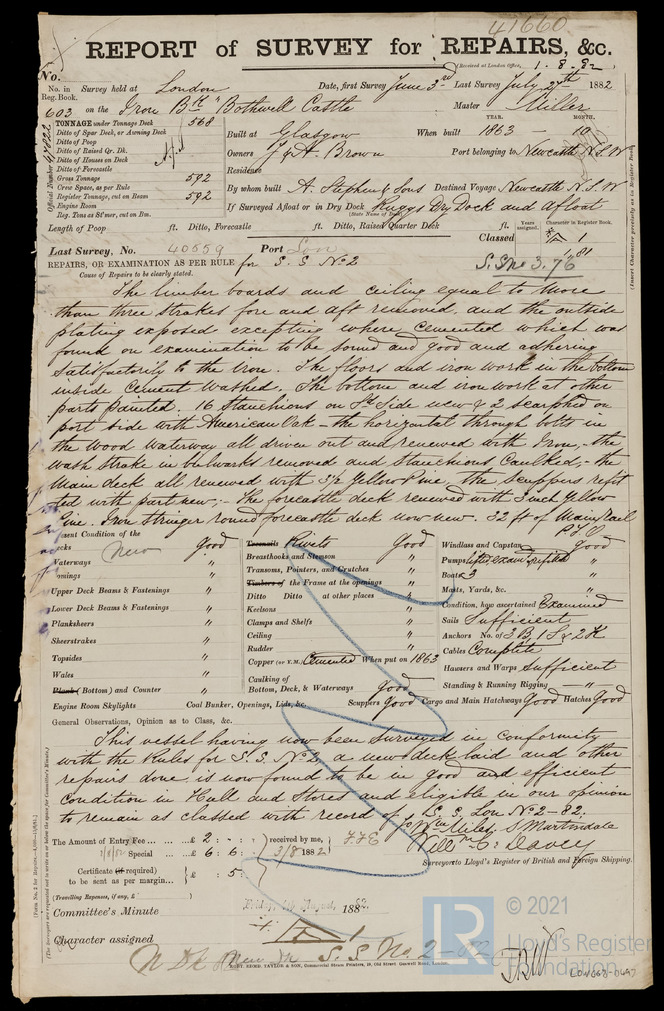 47660
REPORT of SURVEY for REPAIRS, &c.
(Received at London Office, 1.8.82
No.
No. in Reg. Book. Survey held at London Date, first Survey June 3rd Last Survey July 27th 1882
603 on the Iron Bk "Bothwell Castle" Master Miller
TONNAGE under Tonnage Deck 568
Ditto of Spar Deck, or Awning Deck
Ditto of Poop
Ditto of Raised Qr. Dk.
Ditto of Houses on Deck
Ditto of Forecastle
Gross Tonnage 592
Crew Space, as per Rule
Register Tonnage, cut on Beam 592
Engine Room
Reg. Tons as 86'wer, cut on Bm.
Official Number 47822
YEAR. MONTH.
Built at Glasgow When built 1863 - 10
Owners J & A Brown Port belonging to Newcastle N.S.W
Residence
By whom built A. Stephen & Sons Destined Voyage Newcastle N.S.W
If Surveyed Afloat or in Dry Dock Dry Dock and Afloat
(State Name of Dock)
Length of Poop ft. Ditto, Forecastle ft. Ditto, Raised Quarter Deck ft.
Years assigned. Character in Register Book.
Classed 1
81
Last Survey, No. 40559 Port Lon
S.S No 3. 76
REPAIRS, OR EXAMINATION AS PER RULE for S. S No 2
Cause of Repairs to be clearly stated.
The limber boards and ceiling equal to more
than three strakes fore and aft removed, and the outside
plating exposed excepting where cemented which was
found on examination to be sound and good and adhering
satisfactorily to the iron. The floors and iron work in the bottom
inside Cement washed. The bottom and iron work at other
parts painted. 16 Stanchions on Sd Side new & 2 scarphed on
port side with American Oak - the horizontal through bolts in
the wood waterway all driven out and renewed with Iron, - the
wash strake in bulwarks removed and Stanchions Caulked; - the
Main deck all renewed with 3½ Yellow Pine, the scuppers refit
ted with part new; - The forecastle deck renewed with 3 inch Yellow
Pine. Iron Stringer round forecastle deck now new. 32 ft of Main rail
Present Condition of the
Decks New Good
Waterways "
Comings "
Upper Deck Beams & Fastenings "
Lower Deck Beams & Fastenings "
Planksheers "
Sheerstrakes "
Topsides "
Wales "
Plank (Bottom) and Counter "
Engine Room Skylights
Treenails Rivets Good
Breasthooks and Stemson "
Transoms, Pointers, and Crutches "
Timbers of the Frame at the openings "
Ditto Ditto at other places "
Keelsons "
Clamps and Shelfs "
Ceiling "
Rudder "
Copper (or Y.M.) Cemented When put on 1863
Caulking of
Bottom, Deck, & Waterways Good
Coal Bunker, Openings, Lids, &c. Scuppers Good
Windlass and Capstan Good
Pumps "
Boats 3 "
Masts, Yards, &c. "
Condition, how ascertained Examined
Sails Sufficient
Anchors No. of 3 B, 1 S & 2 K
Cables Complete
Hawsers and Warps Sufficient
Standing & Running Rigging "
Cargo and Main Hatchways Good Hatches Good
General Observations, Opinion as to Class, &c.
This vessel having now been Surveyed in conformity
with the Rules for S.S. No 2, a new deck laid and other
repairs done is now found to be in good and efficient
condition in Hull and Stores and eligible in our opinion
to remain as classed with record of S. S. Lon No 2 - 82.
The Amount of Entry Fee ... £ 2 : - : -
Special ... £ 6 : 6 :
Certificate (if required) to be sent as per margin... £ : 5 :
received by me,
3/8 1882
(Travelling Expenses, if any, £ )
S Martindale
Willm C. Davey
Surveyors to Lloyd's Register of British and Foreign Shipping.
Committee's Minute Friday, 4th August, 1882.
Character assigned
N Dk New Dk S. S. No. 2 - 82
© 2021
LR Lloyd's Register
Foundation
LON668-0697